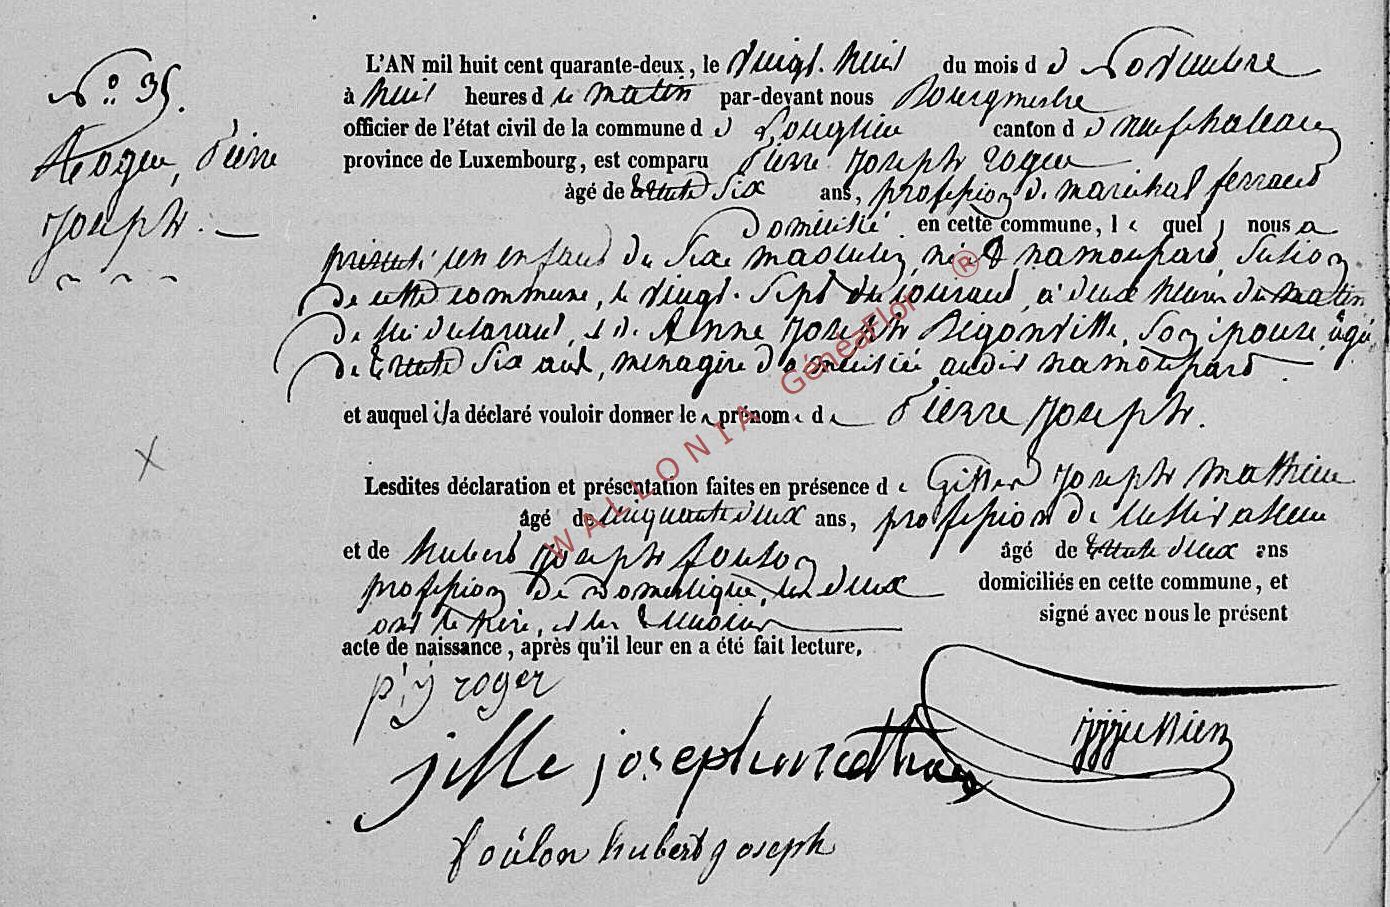 N° 35.
Roger, Pierre
Joseph.
L'AN mil huit cent quarante-deux, le vingt-huit du mois d e Novembre
à huit heures d u matin par-devant nous Bourgmestre
officier de l'état civil de la commune d e Longlier canton d e neufchateau
province de Luxembourg, est comparu Pierre Joseph roger
âgé de trente six ans, profession de maréchal ferrant
Domicilié en cette commune, l e quel nous a
présenté un enfant du Sexe masculin, né à namoupard, Section
de cette commune, le vingt-Sept du courant à deux heures du matin
de lui déclarant, et de Anne Joseph Bigonville, Son épouse, âgée
de trente Six ans, ménagère domiciliée audit namoupard
et auquel il a déclaré vouloir donner le prénom de Pierre Joseph.
Lesdites déclaration et présentation faites en présence d e Gilles Joseph Mathieu
âgé de cinquante deux ans, profession de cultivateur
et de hubert Joseph foulon âgé de trente deux ans
profession de Domestique, les deux domiciliés en cette commune, et
ont le père, et les témoins signé avec nous le présent
acte de naissance, après qu'il leur en a été fait lecture.
p, j roger
jille joseph mathieu
foulon hubert joseph
WALLONIA GénéaFlor ®
X